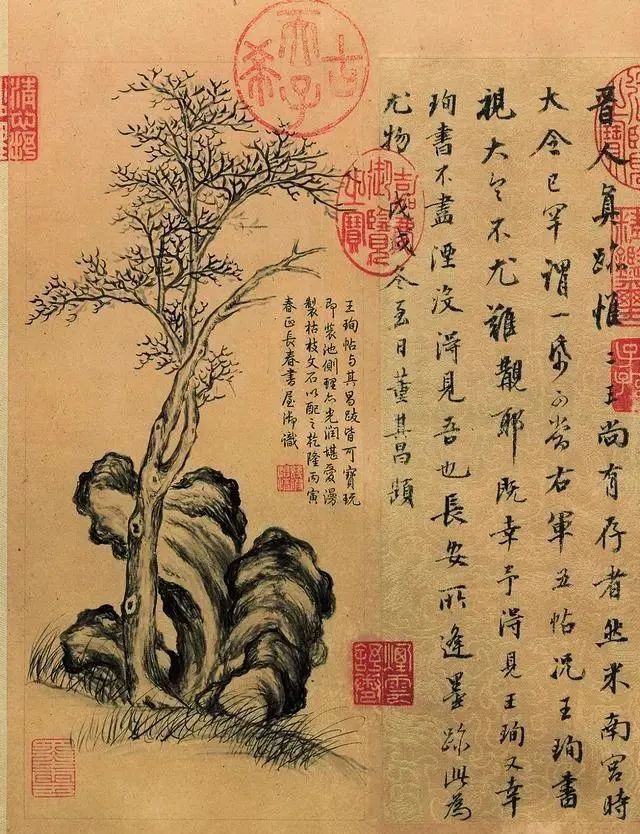 晋人真跡惟二王尚有存者然米南宮時
大令已罕謂一帋可當右軍五帖况王珣書
視大令不尤難覯耶既幸予得見王珣又幸
珣書不盡湮沒得見吾也長安所逢墨跡此為
尤物 戊戌冬至日董其昌題
王珣帖與其昌跋皆可寶玩
即裝池側理亦光潤堪愛漫
製枯枝文石以配之乾隆丙寅
春正長春書屋御識
古希天子
嘉慶御覽之寶